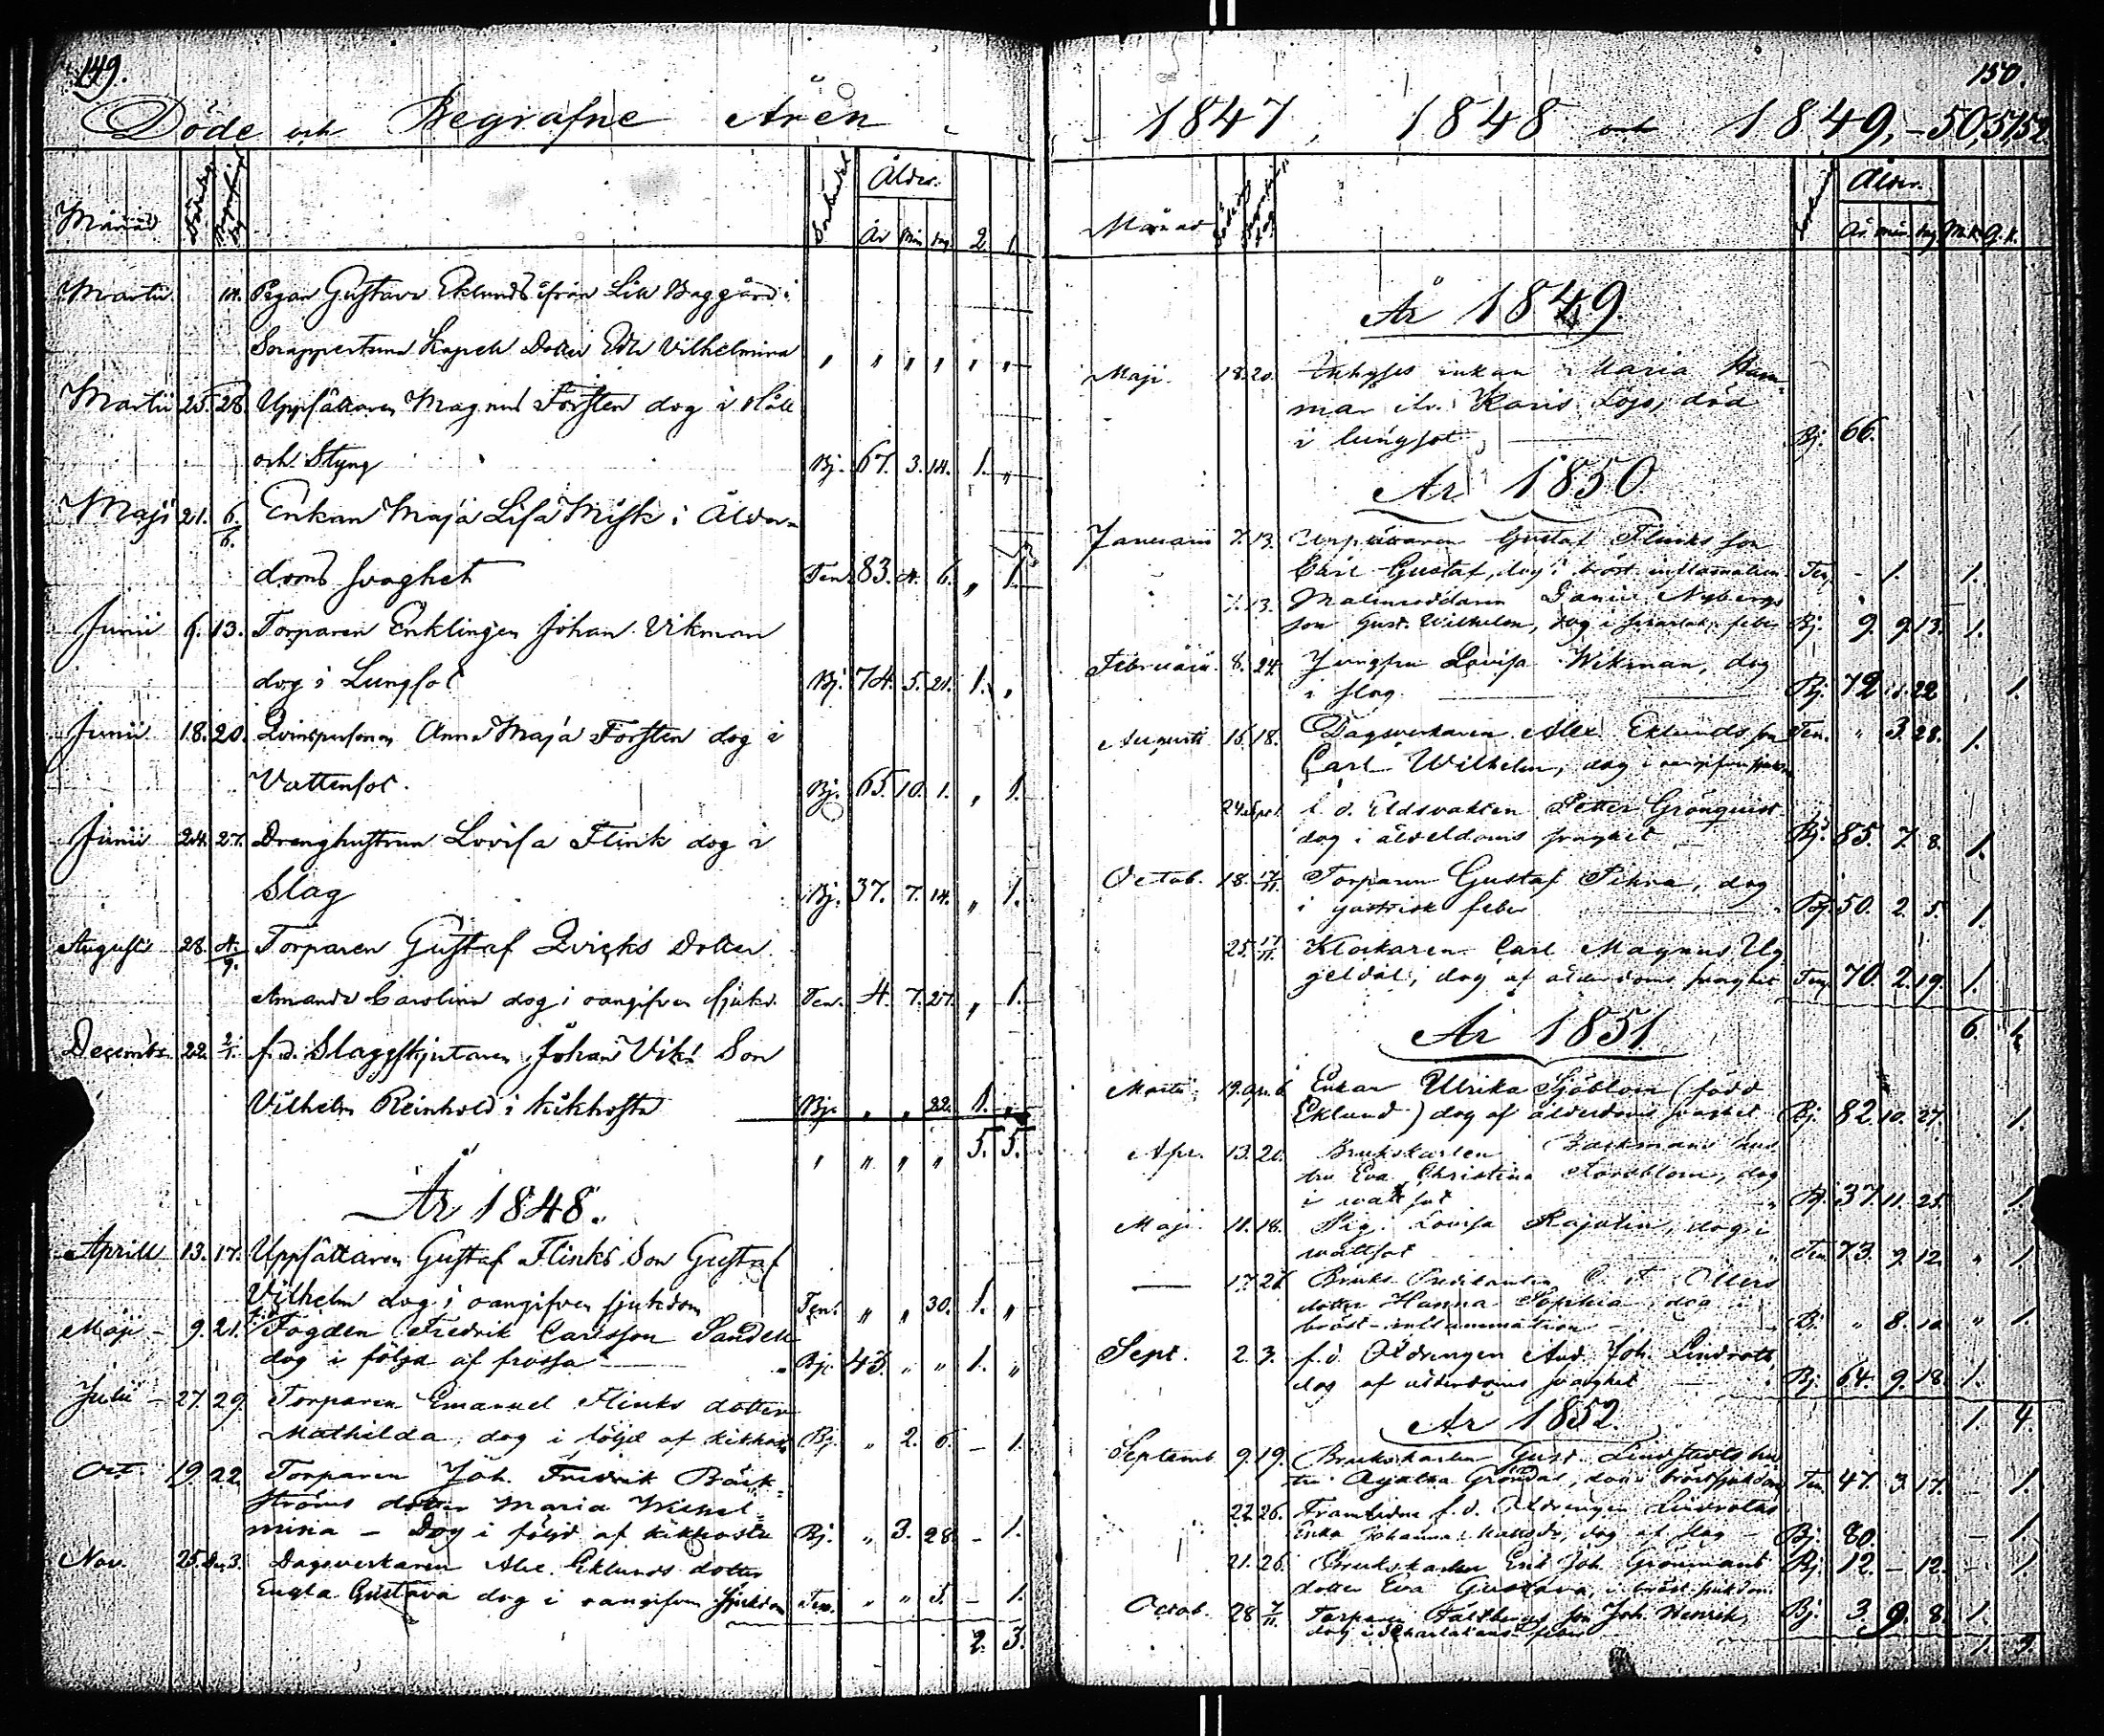 149.
Döde och Begrafne Åren
Månad Ålder.
År Mån dag 2. 1.
Martii 14. Pigan Gustava Eklunds ifrån Lill Baggård i
Snappertuna Kapell Dotter Edla Vilhelmina " " " " " "
Martii 25. 28. Uppsättaren Magnus Forsten dog i Håll
och Styng Bj. 67. 3. 14. 1. "
Maji 21. 6/6. Enkan Maja Lisa Misk i Ålder-
doms svaghet Ten. 83. 4. 6. " 1.
Junii 6. 13. Torparen Enklingen Johan Vikman
dog i Lungsot Bj. 74. 5. 21. 1. "
Junii 18. 20. Qvinspersonen Anna Maja Forsten dog i
Vattensot. Bj. 65. 10. 1. " 1.
Junii 24. 27. Drenghustrun Lovisa Flink dog i
Slag Bj. 37. 7. 14. " 1.
Augusti 28. 4/9. Torparen Gustaf Qvicks Dotter
Amanda Carolina dog i oangifven sjukd. Ten. 4. 7. 27. " 1.
December 22. 2/1. f.d. Slaggskjutaren Johan Viks Son
Vilhelm Reinhold i kikhosta Bj. " " 22. 1. "
" " " " 5. 5.
År 1848.
Aprill 13. 17. Uppsättaren Gustaf Flinks Son Gustaf
Vilhelm dog i oangifven sjukdom Ten. " " 30. 1. "
Maji 9. 21. f.d. Fogden Fredrik Carlsson Sandell
dog i följd af frossa Bj. 43. " " 1. "
Julii 27. 29. Torparen Emanuel Flinks dotter
Mathilda, dog i följd af kikhosta Bj. " 2. 6. – 1.
Oct. 19. 22. Torparen Joh. Fredrik Bäck-
ströms dotter Maria Wilhel-
mina – Dog i följd af kikhosta Bj. " 3. 28. – 1.
Nov. 25. Dec. 3. Dagsverkaren Alex. Eklunds dotter
Engla Gustava dog i oangifven sjukdom Ten. " " 5. – 1.
2. 3.
150.
1847, 1848 och 1849, – 50, 51, 52
Månad Ålder.
År. mån. dag. M.k. Q.k.
År 1849.
Maji. 18. 20. Inhyses enkan Maria Ham-
mar Karis Lojo, död
i lungsot Bj. 66.
År 1850
Januarii 7. 13. Uppsättaren Gustaf Flinks son
Carl Gustaf, dog i bröst inflammation Ten. – 1. 1.
7. 13. Nybergs
son Gust. Wilhelm, dog i feber Bj. 9. 9. 13. 1.
Februarii 8. 24. Jungfru Lovisa Wikman, dog
i slag Bj. 72 22 1.
Augusti 16. 18. Dagsverkaren Alex. Eklunds son Ten. " 3. 28. 1.
Carl Wilhelm, dog i oangifven
24. Sept. 1. f.d. Eldsvakten Petter Grönquist
dog i ålderdoms svaghet Bj. 85. 7. 8. 1.
Octob. 18. 17/11. Torparen Gustaf, dog
i gastrisk feber Bj. 50. 2. 5. 1.
25. 17/11. Klockaren Carl Magnus Ug
geldal, dog af ålderdoms svaghet Ten. 70. 2. 19. 1.
6. 1.
År 1851.
Martii 19. Apr. 6. Enkan Ulrika Sjöblom (född
Eklund) dog af ålderdoms svaghet Bj. 82. 10. 27. 1.
Apr. 13. 20. Brukskarlen Backmans hus
tru Eva Christina, dog
i wattsot Bj. 37. 11. 25. 1.
Maji 11. 18. Pig. Lovisa, dog i
wattsot Ten. 73. 9. 12. " 1.
17. 27. Bruks Predikanten
dotter Hanna Sophia, dog i
bröst-inflammation Bj. " 8. 10 " 1.
Sept. 2. 3. f.d. Åldrengen And. Joh. Lindroth
dog af ålderdoms svaghet Bj. 64. 9. 18. 1.
1. 4.
År 1852.
Septemb. 9. 19. Brukskarlen Gust. Lindstedts hus
tru Agatha Gröndal, dog i bröstsjukdom Ten. 47. 3. 17. – 1.
22. 26. Framlidne f.d. Åldrengen Lindroths
Enka Johanna, dog af slag Bj. 80. – 1.
21. 26. Brukskarlen Erik Joh. Grönmans Bj. 12. – 12. – 1.
dotter Eva Gustava i bröst sjukdom
Octob. 28. 7/11. Torparen son Joh. Henrik, Bj. 3. 9. 8. 1.
dog i Scharlakans feber
1. 3.